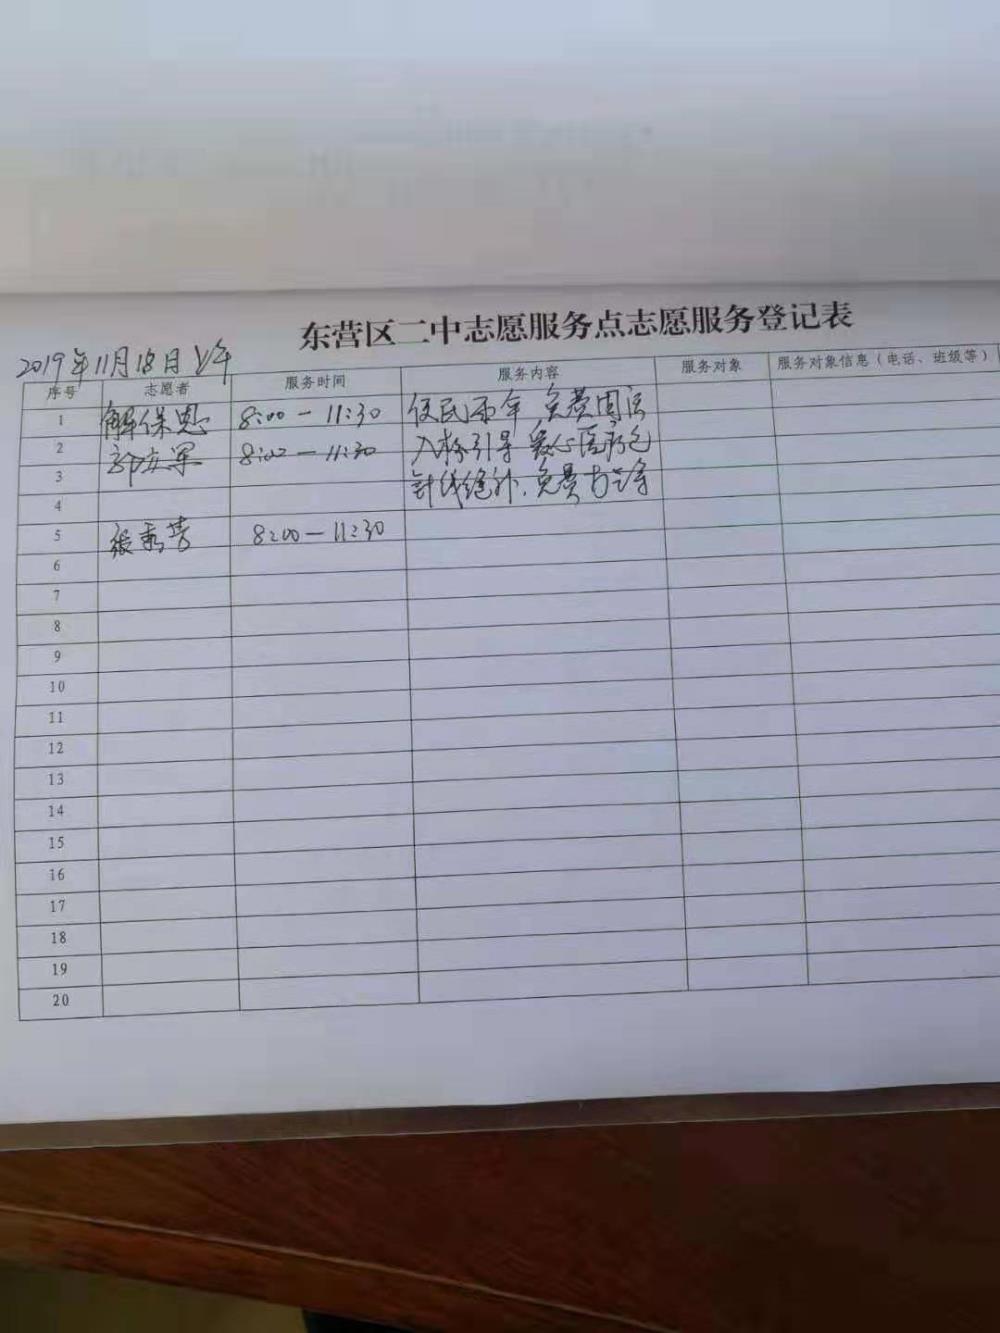 东营区二中志愿服务点志愿服务登记表
2019年11月18日上午
序号 志愿者 服务时间 服务内容 服务对象 服务对象信息（电话、班级等）
1 解保恩 8:00—11:30 便民雨伞 免费
2 8:00—11:30 入校引导 爱心医药包
3 针线缝补、免费
4
5 张秀芳 8:00—11:30
6
7
8
9
10
11
12
13
14
15
16
17
18
19
20